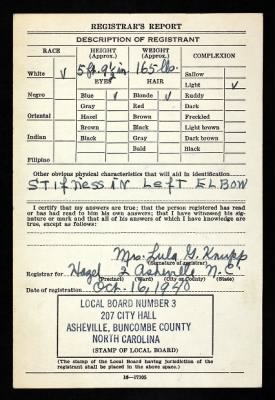 REGISTRAR'S REPORT
DESCRIPTION OF REGISTRANT
RACE HEIGHT (Approx.) WEIGHT (Approx.) COMPLEXION
5 ft. 9½ in. 165 lbs. Sallow
White V EYES HAIR Light V
Negro Blue V Blonde V Ruddy
Gray Red Dark
Oriental Hazel Brown Freckled
Brown Black Light brown
Indian Black Gray Dark brown
Bald Black
Filipino
Other obvious physical characteristics that will aid in identification
STIFNESS IN LEFT ELBOW
I certify that my answers are true; that the person registered has read
or has had read to him his own answers; that I have witnessed his signa-
ture or mark and that all of his answers of which I have knowledge are
true, except as follows:
Mrs. Lula G. Knupp
(Signature of registrar)
Registrar for Hazel 2 Asheville N.C.
(Precinct) (Ward) (City or County) (State)
Date of registration Oct. 16, 1940
LOCAL BOARD NUMBER 3
207 CITY HALL
ASHEVILLE, BUNCOMBE COUNTY
NORTH CAROLINA
(STAMP OF LOCAL BOARD)
(The stamp of the Local Board having jurisdiction of the
registrant shall be placed in the above space.)
16—17105